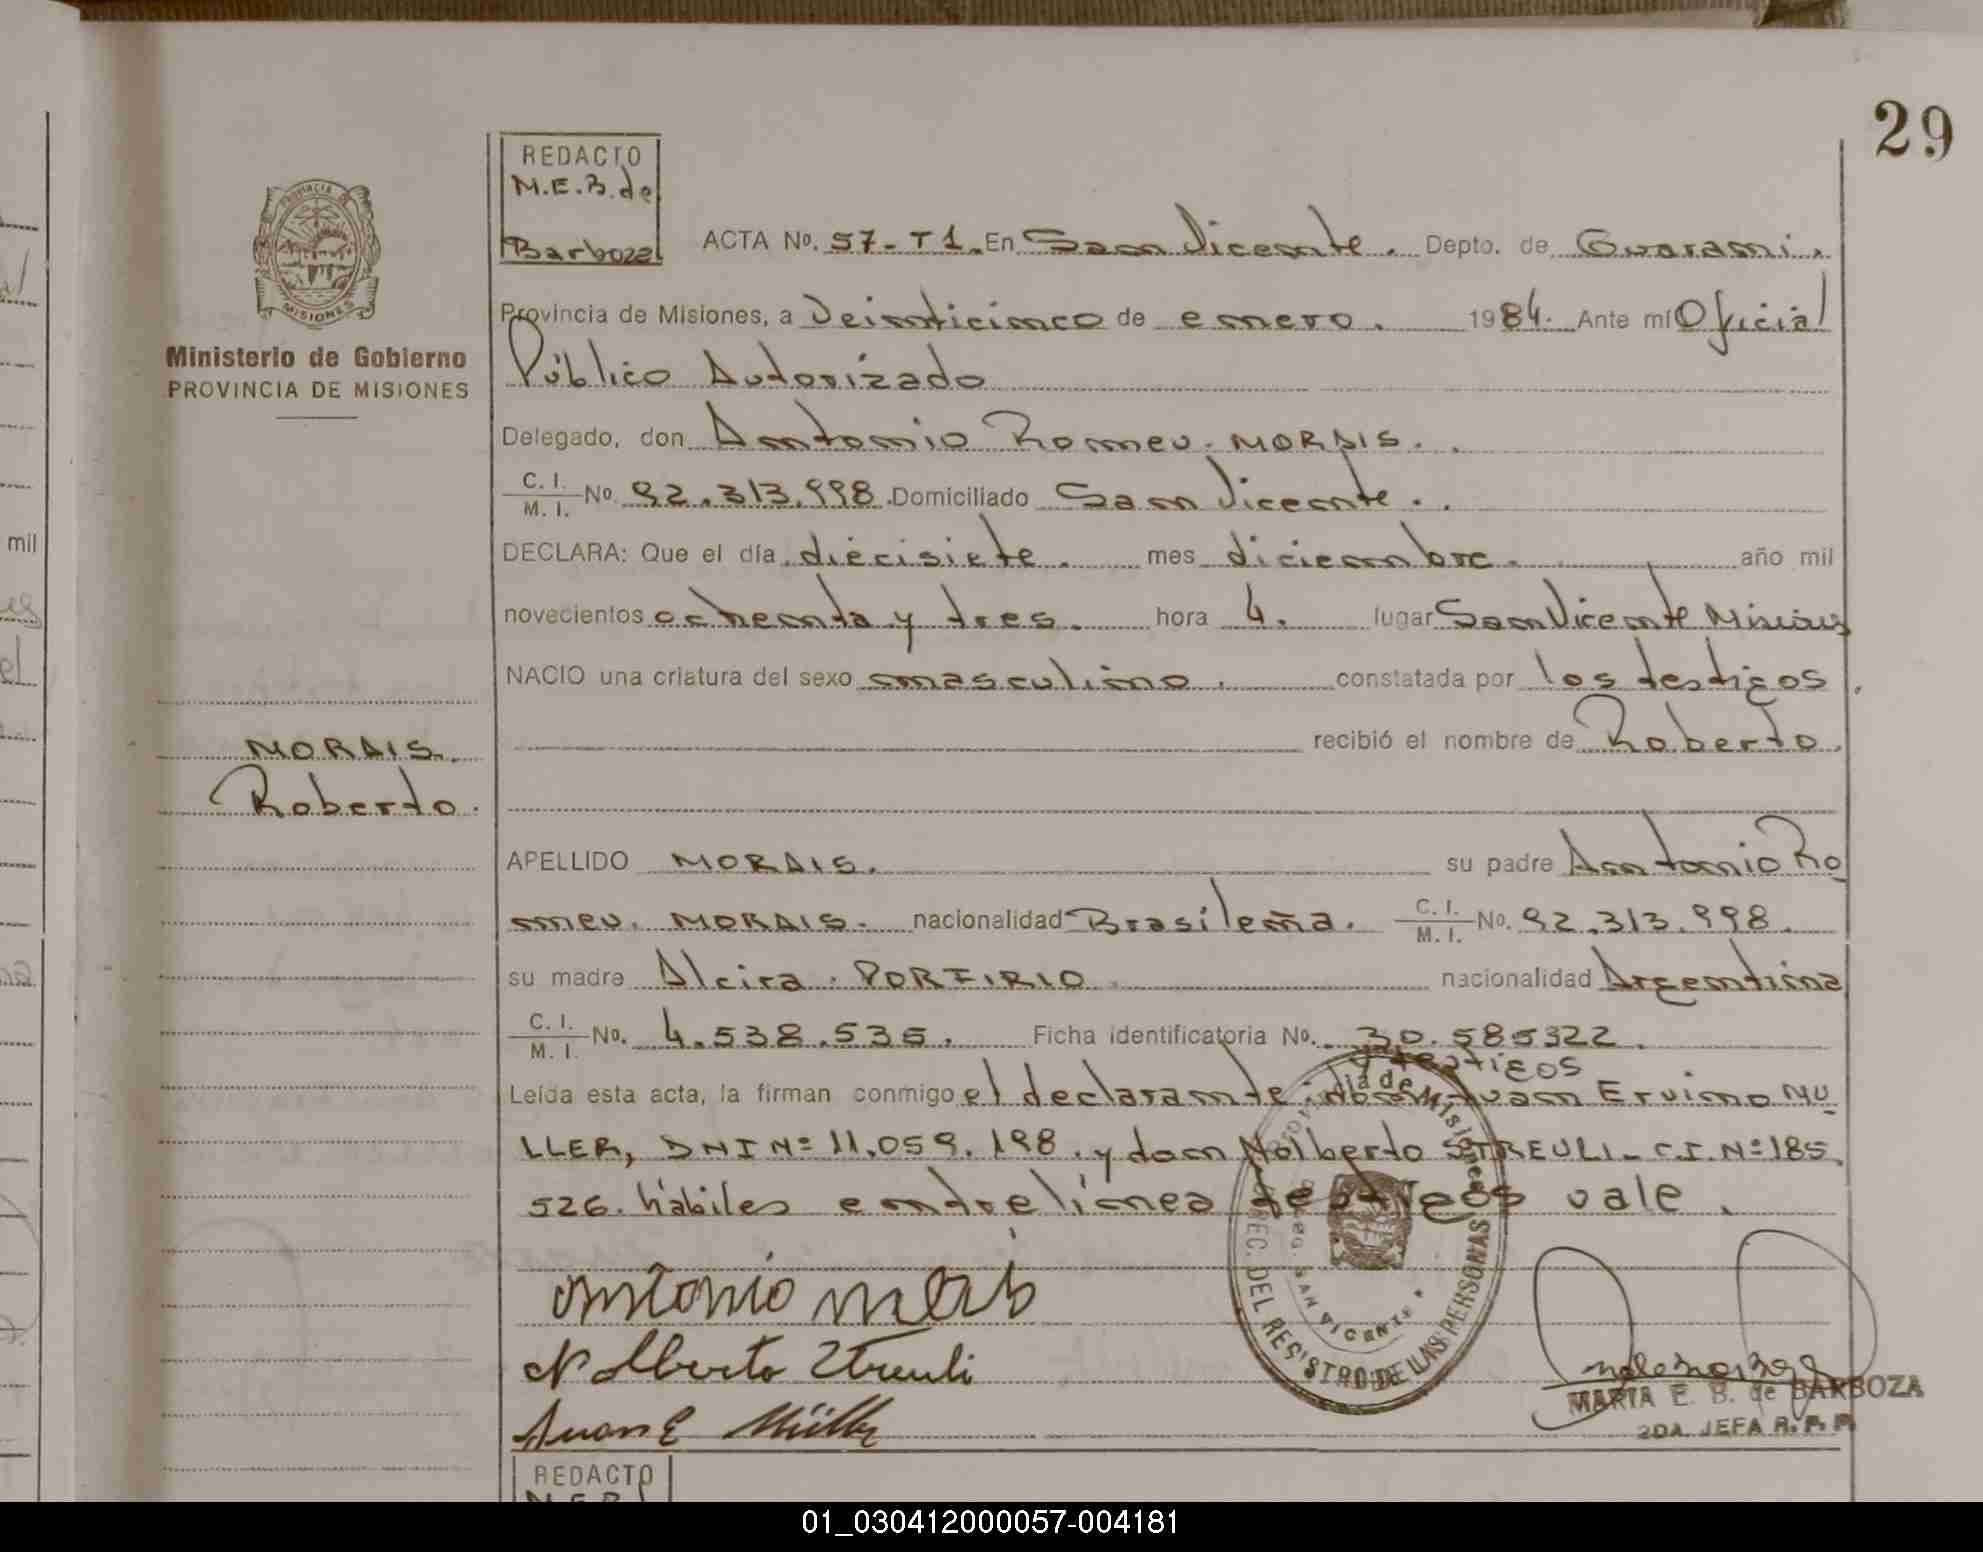 29
REDACTO
M.E.B. de
Barboza
ACTA No. 57-T1. En San Vicente. Depto. de Guarani.
Provincia de Misiones, a Veinticinco de enero. 1984. Ante mí Oficial
Público Autorizado
PROVINCIA DE
MISIONES
Ministerio de Gobierno
PROVINCIA DE MISIONES
Delegado, don Antonio Romeu. MORAIS.
C. I. / M. I. No. 92.313.998. Domiciliado San Vicente.
DECLARA: Que el día diecisiete. mes diciembre. año mil
novecientos ochenta y tres. hora 4. lugar San Vicente Misiones
NACIO una criatura del sexo masculino. constatada por los testigos
recibió el nombre de Roberto.
MORAIS.
Roberto.
APELLIDO MORAIS. su padre Antonio Ro
meu. MORAIS. nacionalidad Brasileña. C. I. / M. I. No. 92.313.998.
su madre Alcira. PORFIRIO. nacionalidad Argentina
C. I. / M. I. No. 4.538.535. Ficha identificatoria No. 30.585322.
y testigos
Leída esta acta, la firman conmigo el declarante: Juan Ervino MU
LLER, DNI Nº 11.059.198. y don Nolberto STREULI- C.I. Nº 185.
526. hábiles entrelínea testigos vale.
Antonio Morais
Nolberto Streuli
Juan E Müller
Provincia de Misiones
DIREC. DEL REGISTRO DE LAS PERSONAS
SAN VICENTE
MARIA E. B. de BARBOZA
2DA. JEFA R. P. P.
REDACTO
mil
01_030412000057-004181